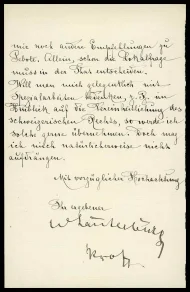 mir noch andere Empfehlungen zu
Gebote. Allein, schon die Lokalfrage
muss in der That entscheiden.
Will man mich gelegentlich mit
Spezialarbeiten z. B. im
Hinblick auf die Vereinheitlichung des
schweizerischen Rechts, so werde ich
solche gerne übernehmen. Doch mag
ich mich natürlicherweise nicht
aufdrängen.
Mit vorzüglicher Hochachtung
Ihr ergebener
Prof.